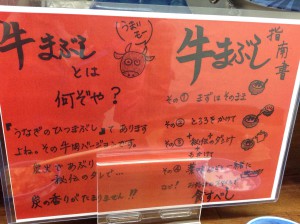 牛まぶし
とは
何ぞや?
うまいもー
『うなぎのひつまぶし』てあります
よね。その牛肉バージョンです。
炭火であぶり
秘伝のタレで…
炭の香りがたまりません!!
牛まぶし
指南書
その① まずはそのまま
その② とろろをかけて
その③
その④
食すべし